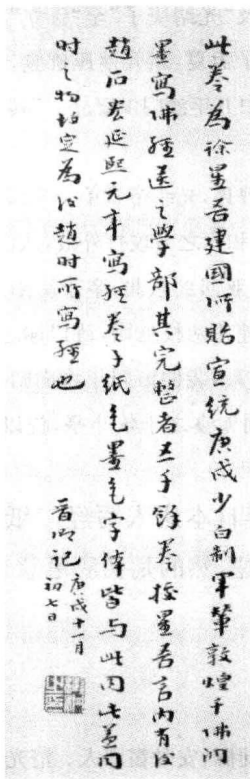 此卷為徐星吾建國所貽宣統庚戌少白制軍輦敦煌千佛洞
墨寫佛經送之學部其完整者五千餘卷據星吾言內有後
趙石延熙元年寫經卷子紙色墨色字体皆與此同此蓋同
時之物故定為後趙時所寫經也
晉卿記
庚戌十月
初七日